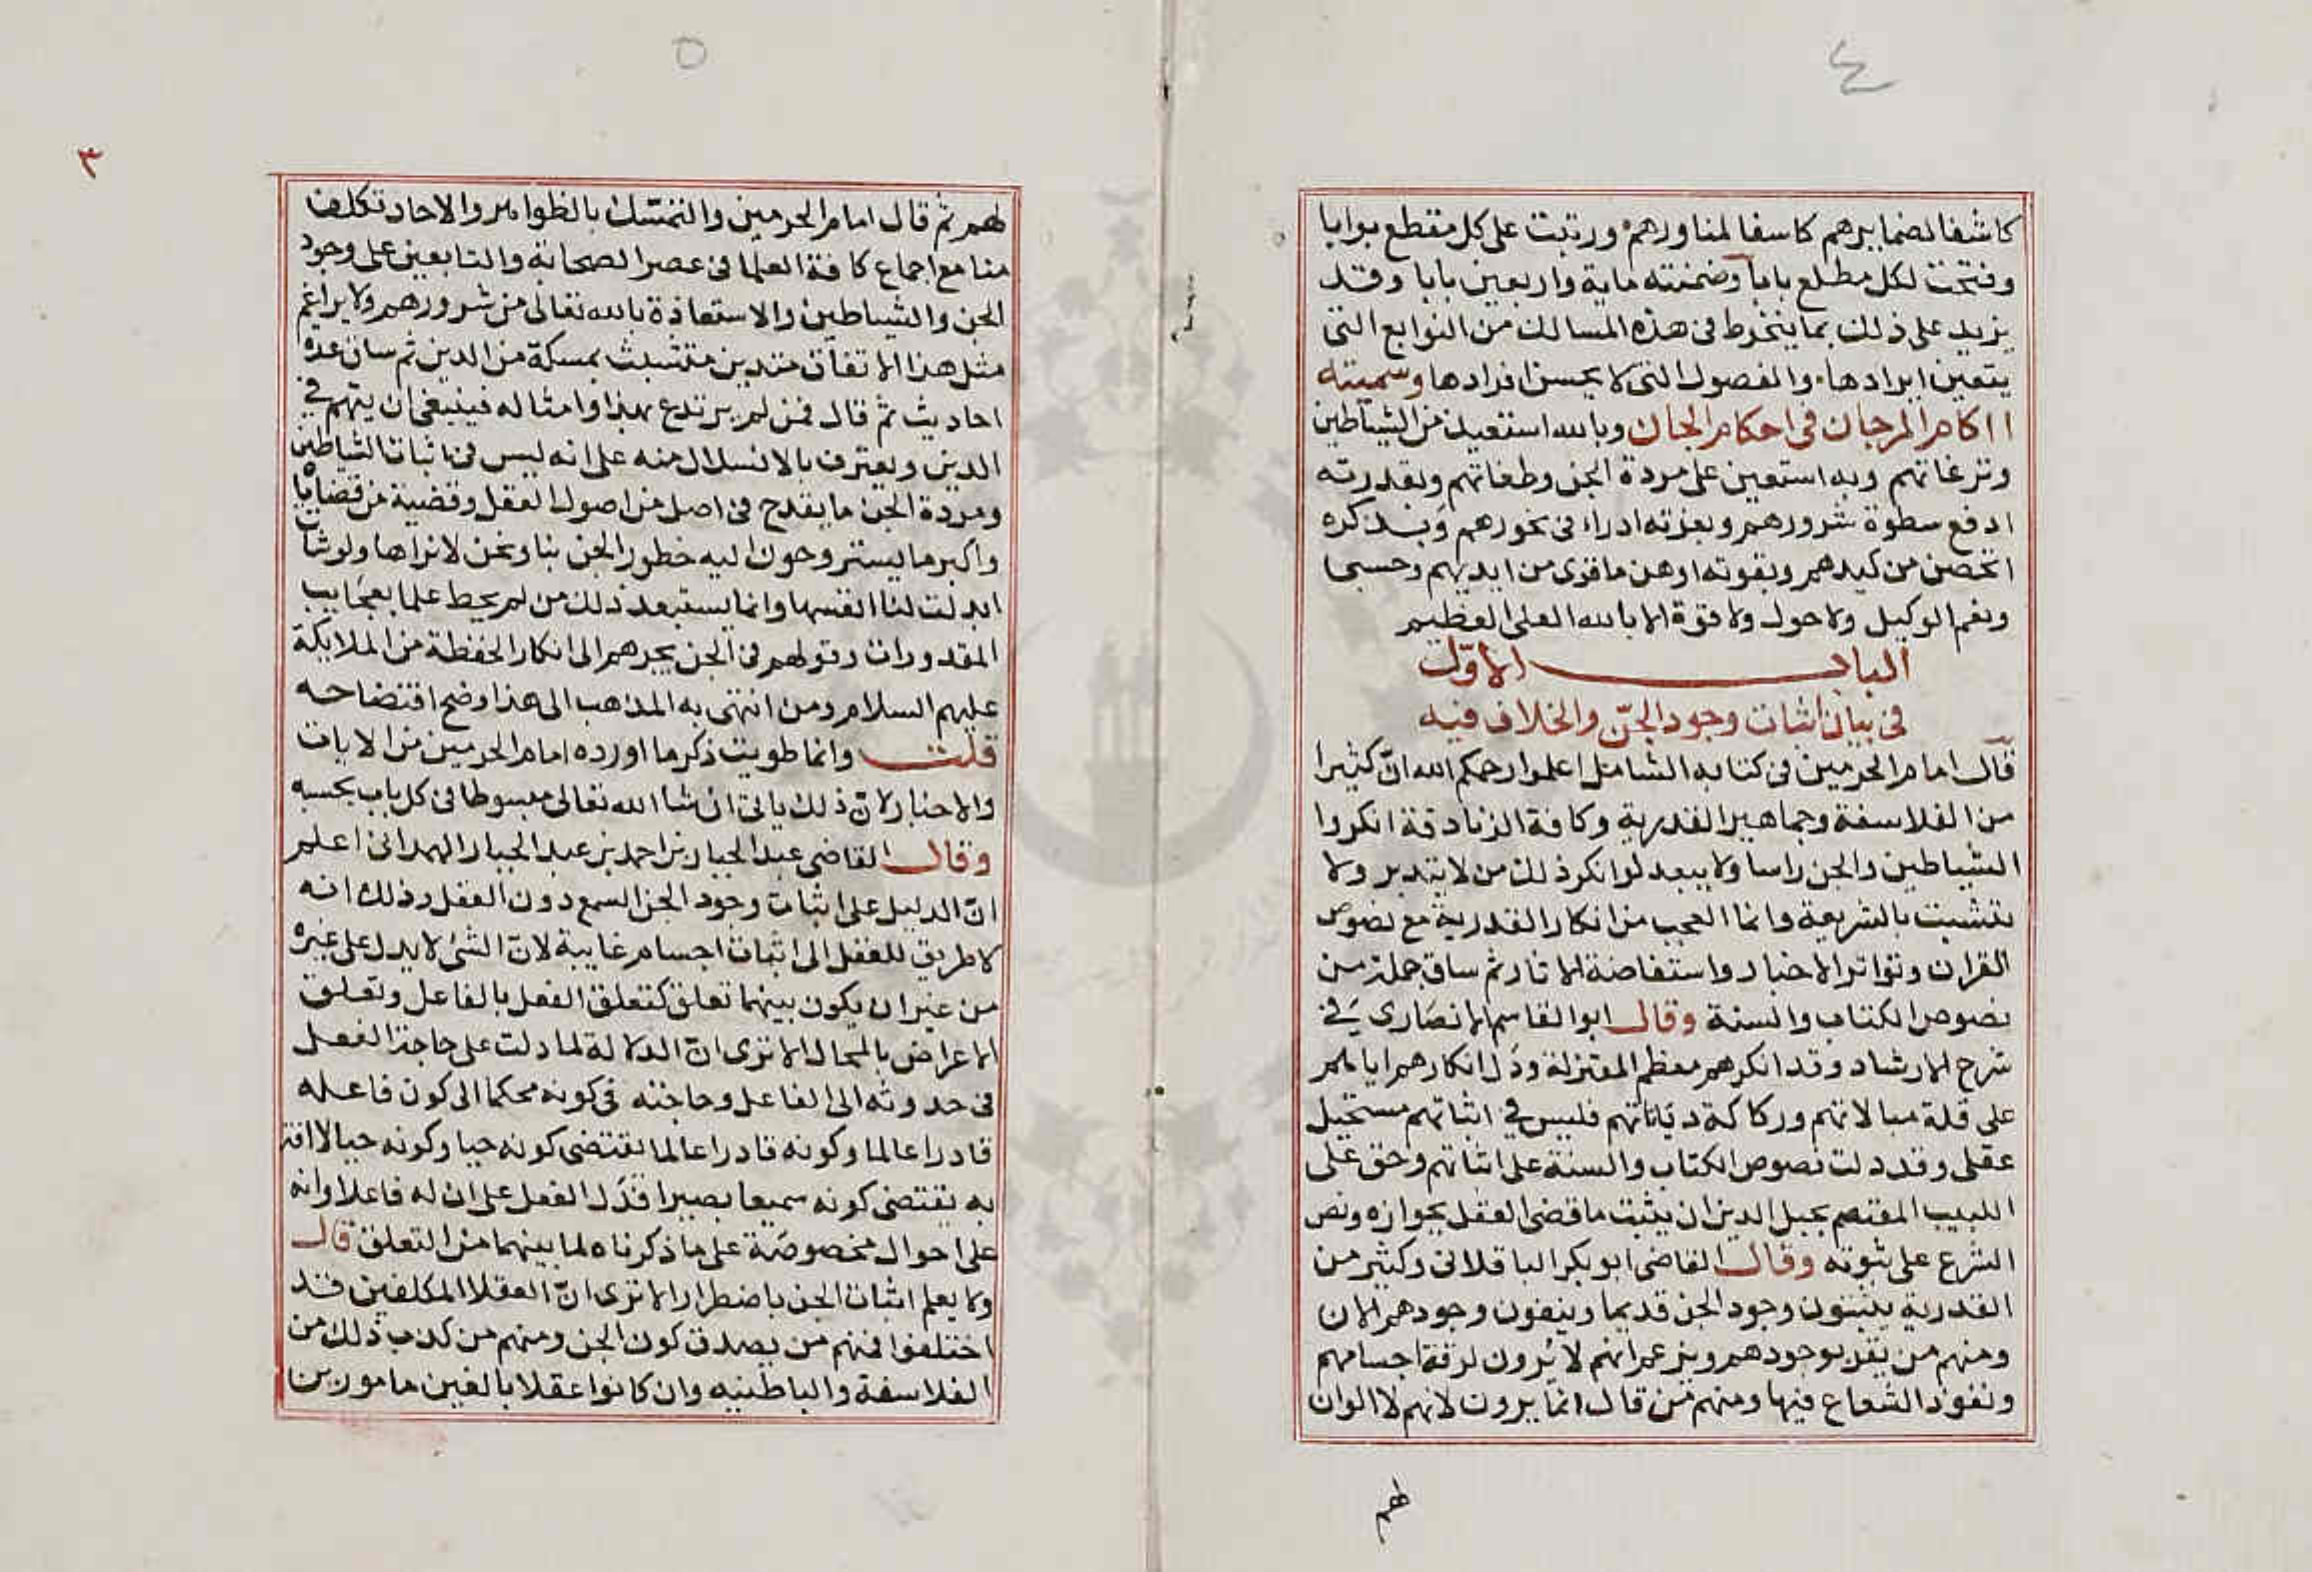 ٤
كاشفا لضمايرهم كاسفا لمناورهم ورتبت على كل مقطع بوابا
وفتحت لكل مطلع بابا وضمنته ماية واربعين بابا وقد
يزيد على ذلك بما ينخرط في هذه المسالك من التوابع التي
يتعين ايرادها والفصول التي لا يحسن افرادها وسميته
ااكام المرجان في احكام الجان وبالله استعيذ من الشياطين
ونزغاتهم وبه استعين على مردة الجن وطغاتهم وبقدرته
ادفع سطوة شرورهم وبعزته ادراء في نحورهم وبذكره
اتحصن من كيدهم وبقوته اوهن ما قوى من ايديهم وحسبي
ونعم الوكيل ولا حول ولا قوة الا بالله العلي العظيم
الباب الاول
في بيان اثبات وجود الجن والخلاف فيه
قال امام الحرمين في كتابه الشامل اعلموا رحمكم الله ان كثيرا
من الفلاسفة وجماهير القدرية وكافة الزنادقة انكروا
الشياطين والجن راسا ولا يبعد لو انكر ذلك من لا يتدبر ولا
يتشبث بالشريعة وانما العجب من انكار القدرية مع نصوص
القران وتواتر الاخبار واستفاضة الاثار ثم ساق جملة من
نصوص الكتاب والسنة وقال ابو القاسم الانصاري في
شرح الارشاد وقد انكرهم معظم المعتزلة ودل انكارهم اياهم
على قلة مبالاتهم وركاكة دياناتهم فليس في اثباتهم مستحيل
عقلي وقد دلت نصوص الكتاب والسنة على اثباتهم وحق على
اللبيب المعتصم بحبل الدين ان يثبت ما قضى العقل بجوازه ونص
الشرع على ثبوته وقال القاضي ابو بكر الباقلاني وكثير من
القدرية يثبتون وجود الجن قديما وينفون وجودهم الان
ومنهم من يقر بوجودهم ويزعم انهم لا يرون لرقة اجسامهم
ونفوذ الشعاع فيها ومنهم من قال انما يرون لانهم لا الوان
لهم
٥
٣
لهم ثم قال امام الحرمين والتمسك بالظواهر والاحاد تكلف
منا مع اجماع كافة العلما في عصر الصحابة والتابعين على وجود
الجن والشياطين والاستعاذة بالله تعالى من شرورهم ولا يراغم
مثل هذا الاتفاق متدين متشبث بمسكة من الدين ثم ساق عدة
احاديث ثم قال فمن لم يرتدع بهذا وامثاله فينبغي ان يتهم في
الدين ويعترف بالانسلال منه على انه ليس في اثبات الشياطين
ومردة الجن ما يقدح في اصل من اصول العقل وقضية من قضاياه
واكبر ما يستروحون اليه خطور الجن بنا ونحن لا نراها ولو شات
ابدلت لنا انفسها وانما يستبعد ذلك من لم يحط علما بعجايب
المقدورات وقولهم في الجن يجرهم الى انكار الحفظة من الملايكة
عليهم السلام ومن انتهى به المذهب الى هذا وضح افتضاحه
قلت وانما طويت ذكر ما اورده امام الحرمين من الايات
والاخبار لان ذلك ياتي ان شا الله تعالى مبسوطا في كل باب بحسبه
وقال القاضي عبد الجبار بن احمد بن عبد الجبار الهمداني اعلم
ان الدليل على اثبات وجود الجن السمع دون العقل وذلك انه
لا طريق للعقل الى اثبات اجسام غايبة لان الشئ لا يدل على غيره
من غير ان يكون بينهما تعلق كتعلق الفعل بالفاعل وتعلق
الاعراض بالمحال الا ترى ان الدلالة لما دلت على حاجة الفعل
في حدوثه الى الفاعل وحاجته في كونه محكما الى كون فاعله
قادرا عالما وكونه قادرا عالما يقتضي كونه حيا وكونه حيا لا افة
به يقتضي كونه سميعا بصيرا فدل الفعل على ان له فاعلا وانه
على احوال مخصوصة على ما ذكرناه لما بينهما من التعلق قال
ولا يعلم اثبات الجن باضطرار الا ترى ان العقلا المكلفين قد
اختلفوا فمنهم من يصدق كون الجن ومنهم من كذب ذلك من
الفلاسفة والباطنيه وان كانوا عقلا بالغين مامورين